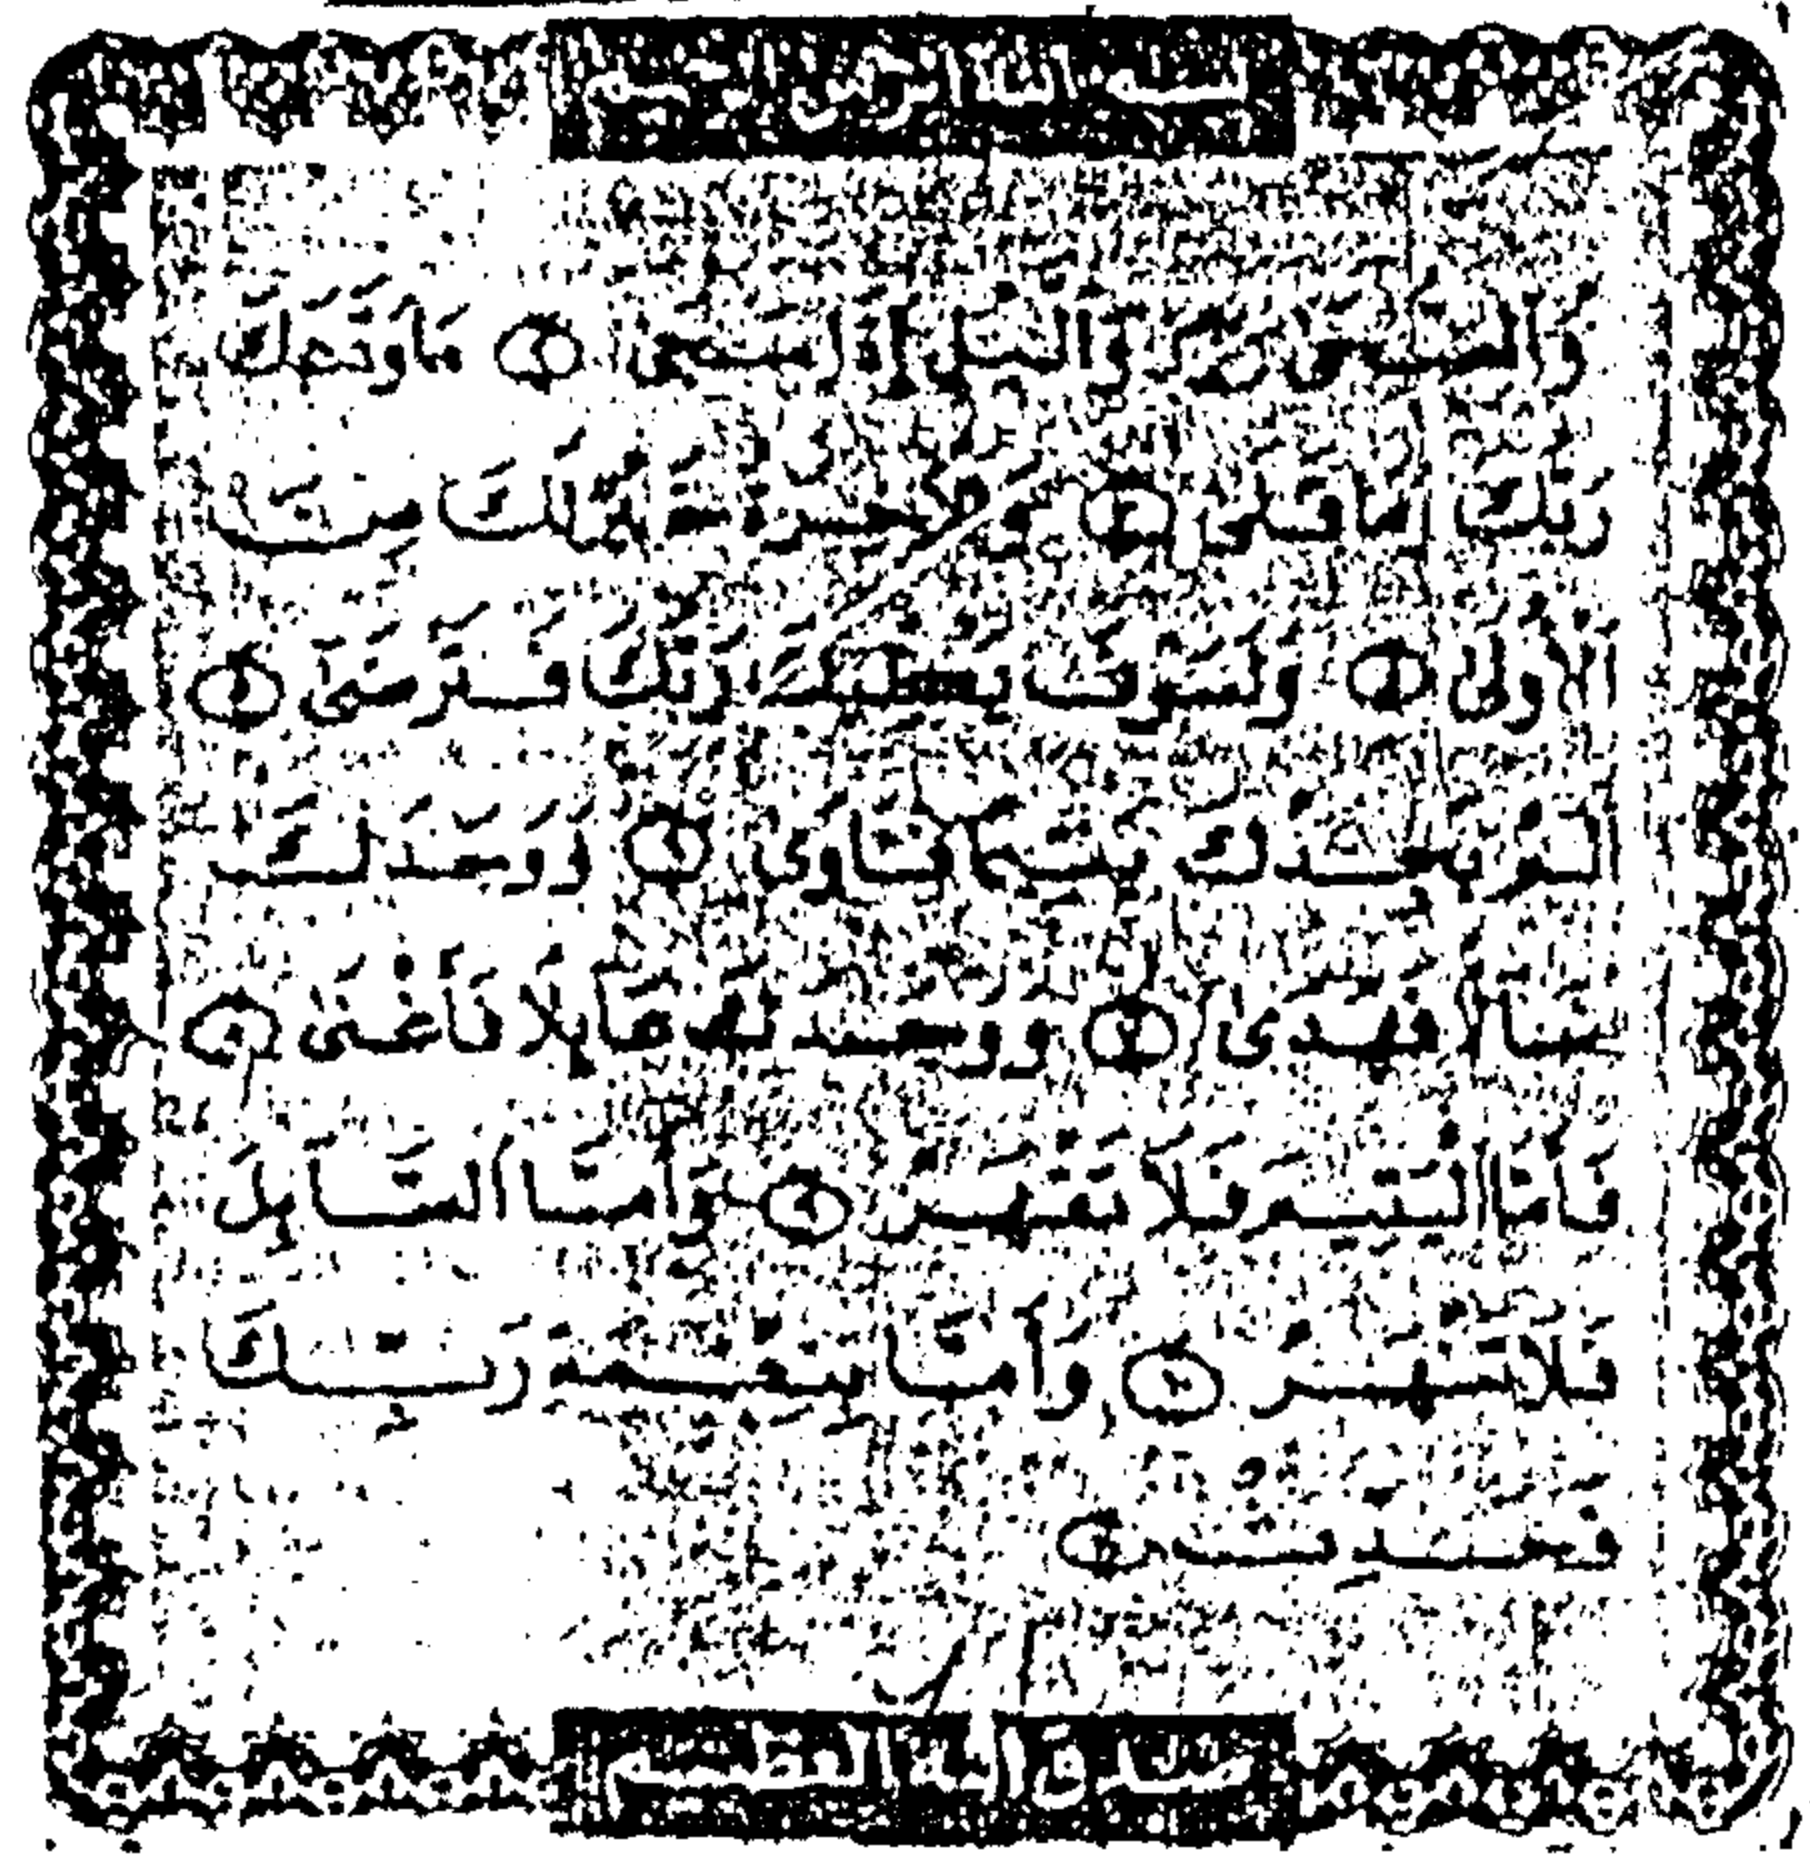 بسم الله الرحمن الرحيم
وَالضُّحَى وَالَّيْلِ إِذَا سَجَى ② مَا وَدَّعَكَ
رَبُّكَ وَمَا قَلَى ③ وَلَلْآخِرَةُ خَيْرٌ لَّكَ مِنَ
الْأُولَى ④ وَلَسَوْفَ يُعْطِيكَ رَبُّكَ فَتَرْضَى ⑤
أَلَمْ يَجِدْكَ يَتِيمًا فَآوَى ⑥ وَوَجَدَكَ
ضَالًّا فَهَدَى ⑦ وَوَجَدَكَ عَائِلًا فَأَغْنَى ⑧
فَأَمَّا الْيَتِيمَ فَلَا تَقْهَرْ ⑨ وَأَمَّا السَّائِلَ
فَلَا تَنْهَرْ ⑩ وَأَمَّا بِنِعْمَةِ رَبِّكَ
فَحَدِّثْ ⑪
صدق الله العظيم